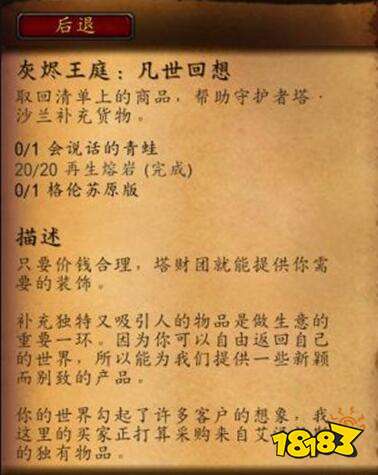 后退
灰烬王庭：凡世回想
取回清单上的商品，帮助守护者塔·
沙兰补充货物。
0/1 会说话的青蛙
20/20 再生熔岩 (完成)
0/1 格伦苏原版
描述
只要价钱合理，塔财团就能提供你需
要的装饰。
补充独特又吸引人的物品是做生意的
重要一环。因为你可以自由返回自己
的世界，所以能为我们提供一些新颖
而别致的产品。
你的世界勾起了许多客户的想象，我
这里的买家正打算采购来自艾泽
的独有物品。
18183